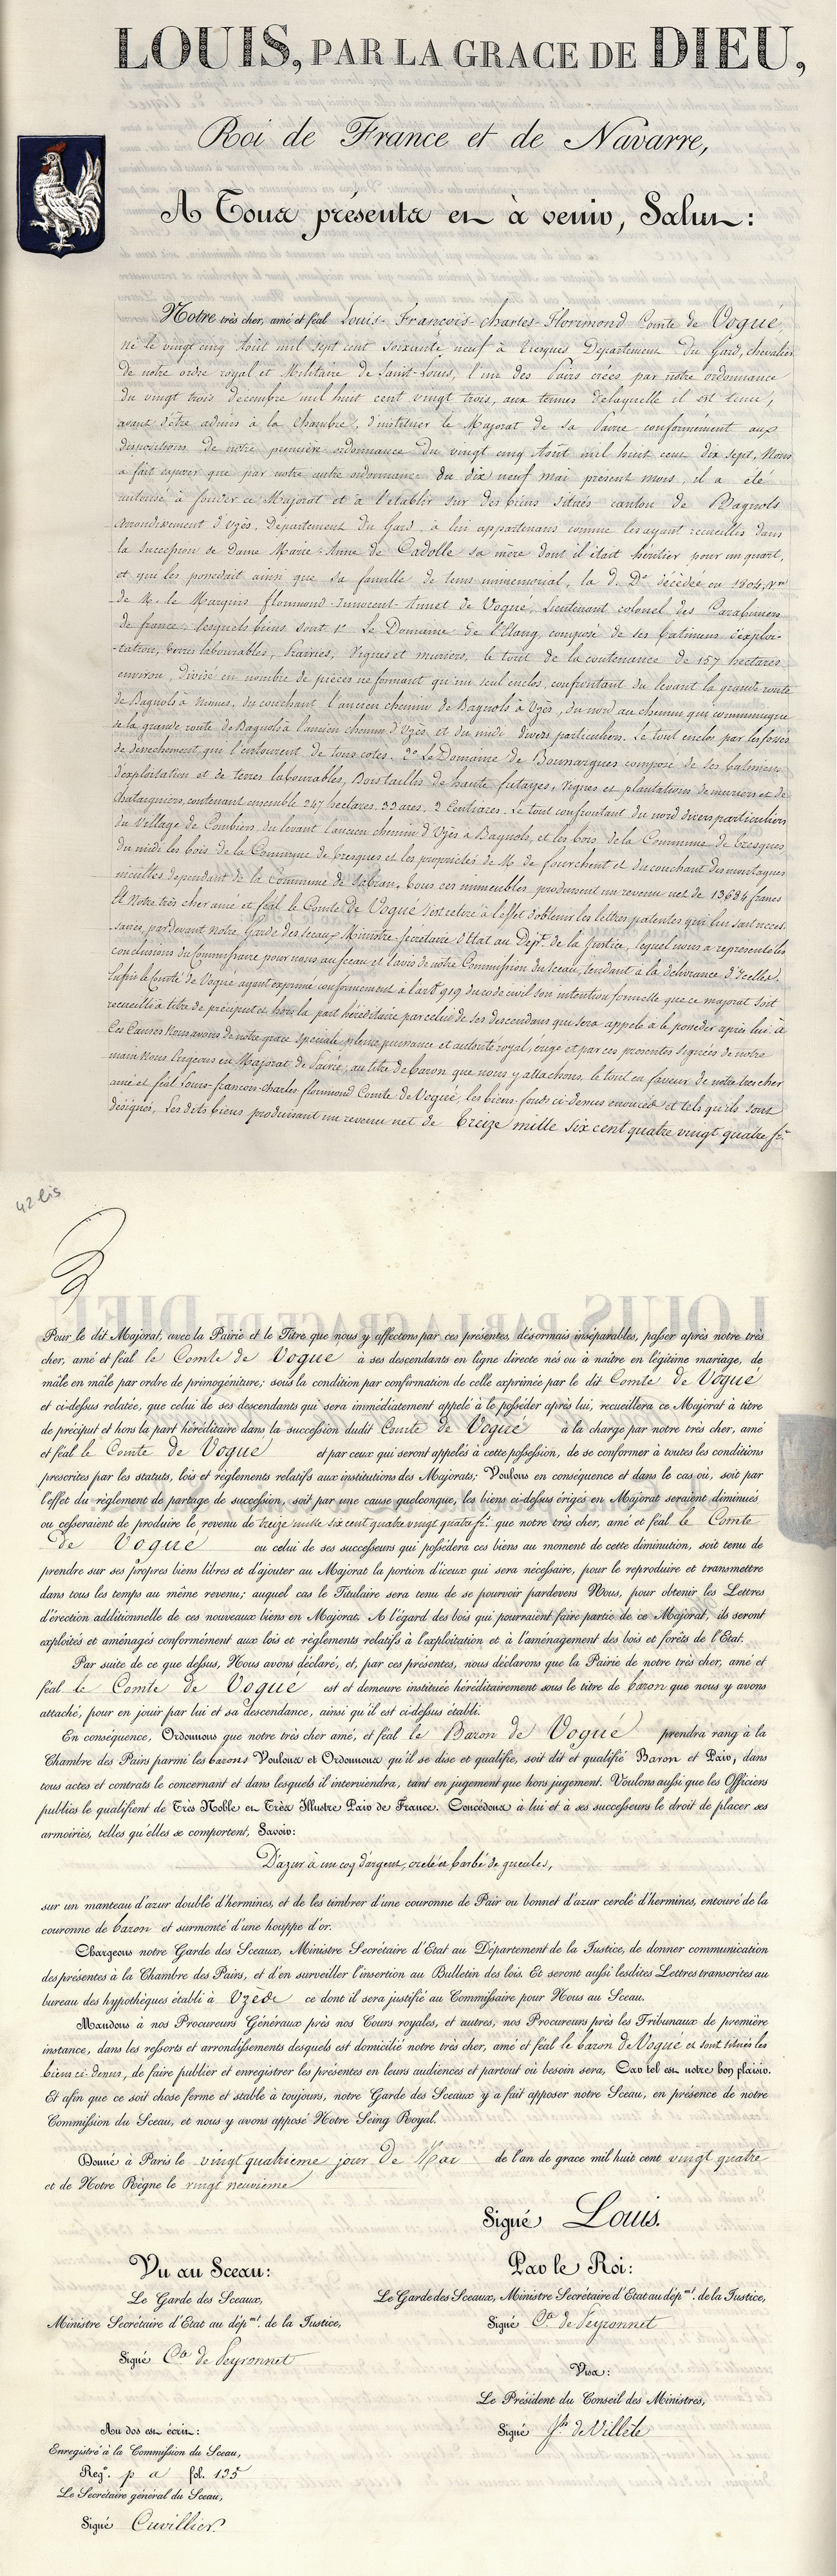 LOUIS, PAR LA GRACE DE DIEU,
Roi de France et de Navarre,
A Tous présents et à venir, Salut:
Notre très cher, amé et féal Louis-François-charles-Florimond Comte de Vogué,
né le vingt cinq Août mil sept cent soixante neuf à Tresques Département du Gard, chevalier
de notre ordre royal et Militaire de Saint-Louis, l'un des Pairs créés par notre ordonnance
du vingt trois décembre mil huit cent vingt trois, aux termes de laquelle il est tenu,
avant d'être admis à la chambre, d'instituer le Majorat de la Pairie conformément aux
dispositions de notre première ordonnance du vingt cinq Août mil huit cent dix sept, Nous
a fait exposer que par notre autre ordonnance du dix neuf mai présent mois, il a été
autorisé à fonder ce Majorat et à l'établir sur des biens situés canton de Bagnols
arrondissement d'Uzès, Département du Gard, à lui appartenans comme les ayant recueillis dans
la succession de dame Marie-Anne de Cadolle sa mère dont il était héritier pour un quart,
et que les possédait ainsi que sa famille de tems immémorial, la d. De décédée en 1804, Vve
de M. le Marquis florimond-Innocent-Annet de Vogué, Lieutenant colonel des Carabiniers
de france, lesquels biens sont 1° Le Domaine de l'Etang, composé de ses batimens d'exploi-
-tation, terres labourables, Prairies, Vignes et muriers, le tout de la contenance de 157 hectares
environ, divisé en nombre de pièces ne formant qu'un seul enclos, confrontant du levant la grande route
de Bagnols à Nimes, du couchant l'ancien chemin de Bagnols à Uzès, du nord au chemin qui communique
de la grande route de Bagnols à l'ancien chemin d'Uzès, et du midi divers particuliers. Le tout enclos par les fossés
de dessechement qui l'entourent de tous cotés. 2° Le Domaine de Boussargues composé de ses batimens
d'exploitation et de terres labourables, Bois taillis de haute futayes, vignes et plantations de muriers et de
chataigniers, contenant ensemble 247 hectares, 33 ares, 2 Centiares. Le tout confrontant du nord divers particuliers
du Village de Combien, du levant l'ancien chemin d'Uzès à Bagnols, et les bois de la Commune de Tresques
du midi les bois de la Commune de Tresques et les propriétés de M. de fourchent et du couchant des montagnes
incultes dépendant de la Commune de Sabran. Tous ces immeubles produisent un revenu net de 13684 francs
Et Notre très cher amé et féal le Comte de Vogué s'est retiré à l'effet d'obtenir les lettres patentes qui lui sont néces-
-saires, pardevant Notre Garde des sceaux Ministre-Secrétaire d'Etat au Dépt. de la Justice, lequel nous a représenté les
conclusions du Commissaire pour nous au Sceau et l'avis de notre Commission du Sceau, tendant à la délivrance d'Icelles.
Enfin le Comte de Vogué ayant exprimé conformément à l'art 919 du code civil son intention formelle que ce majorat soit
recueilli à titre de préciput et hors la part héréditaire par celui de ses descendans qui sera appelé à le posséder après lui. à
Ces Causes Nous avons de notre grace spéciale pleine puissance et autorité royal, érigé et par ces présentes signées de notre
main Nous érigeons en Majorat de Pairie, au titre de baron que nous y attachons, le tout en faveur de notre très cher
amé et féal Louis-françois-charles-florimond Comte de Vogué, les biens-fonds ci-dessus énoncés et tels qu'ils sont
désignés, Les dits biens produisant un revenu net de Treize mille six cent quatre vingt quatre f.
42 bis
Pour le dit Majorat, avec la Pairie et le Titre que nous y affectons par ces présentes, désormais inséparables, passer après notre très
cher, amé et féal le Comte de Vogué à ses descendants en ligne directe nés ou à naître en légitime mariage, de
mâle en mâle par ordre de primogéniture; sous la condition par confirmation de celle exprimée par le dit Comte de Vogué
et ci-dessus relatée, que celui de ses descendants qui sera immédiatement appelé à le posséder après lui, recueillera ce Majorat à titre
de préciput et hors la part héréditaire dans la succession dudit Comte de Vogué à la charge par notre très cher, amé
et féal le Comte de Vogué et par ceux qui seront appelés à cette possession, de se conformer à toutes les conditions
prescrites par les statuts, lois et règlements relatifs aux institutions des Majorats; Voulons en conséquence et dans le cas où, soit par
l'effet du règlement de partage de succession, soit par une cause quelconque, les biens ci-dessus érigés en Majorat seraient diminués
ou cesseraient de produire le revenu de treize mille six cent quatre vingt quatre f. que notre très cher, amé et féal le Comte
de Vogué ou celui de ses successeurs qui possédera ces biens au moment de cette diminution, soit tenu de
prendre sur ses propres biens libres et d'ajouter au Majorat la portion d'iceux qui sera nécessaire, pour le reproduire et transmettre
dans tous les temps au même revenu; auquel cas le Titulaire sera tenu de se pourvoir pardevers Nous, pour obtenir les Lettres
d'érection additionnelle de ces nouveaux biens en Majorat. A l'égard des bois qui pourraient faire partie de ce Majorat, ils seront
exploités et aménagés conformément aux lois et règlements relatifs à l'exploitation et à l'aménagement des bois et forêts de l'Etat.
Par suite de ce que dessus, Nous avons déclaré, et, par ces présentes, nous déclarons que la Pairie de notre très cher, amé et
féal le Comte de Vogué est et demeure instituée héréditairement sous le titre de baron que nous y avons
attaché, pour en jouir par lui et sa descendance, ainsi qu'il est ci-dessus établi.
En conséquence, Ordonnons que notre très cher amé, et féal le Baron de Vogué prendra rang à la
Chambre des Pairs parmi les barons Voulons et Ordonnons qu'il se dise et qualifie, soit dit et qualifié Baron et Pair, dans
tous actes et contrats le concernant et dans lesquels il interviendra, tant en jugement que hors jugement. Voulons aussi que les Officiers
publics le qualifient de Très Noble et Très Illustre Pair de France. Concédons à lui et à ses successeurs le droit de placer ses
armoiries, telles qu'elles se comportent, Savoir:
D'azur à un coq d'argent, creté et barbé de gueules,
sur un manteau d'azur doublé d'hermines, et de les timbrer d'une couronne de Pair ou bonnet d'azur cerclé d'hermines, entouré de la
couronne de baron et surmonté d'une houppe d'or.
Chargeons notre Garde des Sceaux, Ministre Secrétaire d'Etat au Département de la Justice, de donner communication
des présentes à la Chambre des Pairs, et d'en surveiller l'insertion au Bulletin des lois. Et seront aussi lesdites Lettres transcrites au
bureau des hypothèques établi à Uzès ce dont il sera justifié au Commissaire pour Nous au Sceau.
Mandons à nos Procureurs Généraux près nos Cours royales, et autres, nos Procureurs près les Tribunaux de première
instance, dans les ressorts et arrondissements desquels est domicilié notre très cher, amé et féal le baron de Vogué et sont situés les
biens ci-dessus, de faire publier et enregistrer les présentes en leurs audiences et partout où besoin sera, Car tel est notre bon plaisir.
Et afin que ce soit chose ferme et stable à toujours, notre Garde des Sceaux y a fait apposer notre Sceau, en présence de notre
Commission du Sceau, et nous y avons apposé Notre Seing Royal.
Donné à Paris le vingt quatrième jour de Mai de l'an de grace mil huit cent vingt quatre
et de Notre Règne le vingt neuvième
Signé Louis.
Vu au Sceau:
Le Garde des Sceaux,
Ministre Secrétaire d'Etat au dépmt. de la Justice,
Signé Cte de Peyronnet
Par le Roi:
Le Garde des Sceaux, Ministre Secrétaire d'Etat au dépmt. de la Justice,
Signé Cte de Peyronnet
Visa:
Le Président du Conseil des Ministres,
Signé Jh de Villèle
Au dos est écrit:
Enregistré à la Commission du Sceau,
Regre. p a fol. 135
Le Secrétaire général du Sceau,
Signé Cuvillier.